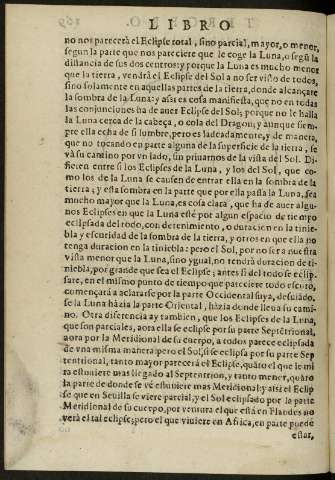 LIBRO
no nos parecerà el Eclipse total, sino parcial, mayor, o menor,
segun la parte que nos pareciere que le coge la Luna, o segũ la
distancia de sus dos centros: y porque la Luna es mucho menor
que la tierra, vendrá el Eclipse del Sol a no ser visto de todos,
sino solamente en aquellas partes de la tierra, donde alcançare
la sombra de la Luna: y assi es cosa manifiesta, que no en todas
las conjunciones ha de auer Eclipse del Sol; porque no le halla
la Luna cerca de la cabeça, o cola del Dragon; y aunque siem-
pre ella echa de si lumbre, pero es ladeadamente, y de manera,
que no tocando en parte alguna de la superficie de la tierra, se
và su camino por vn lado, sin priuarnos de la vista del Sol. Di-
fieren entre si los Eclipses de la Luna, y los del Sol, que co-
mo los de la Luna se causen de entrar ella en la sombra de la
tierra; y esta sombra en la parte que por ella passa la Luna, sea
mucho mayor que la Luna, es cosa clara, que ha de auer algu-
nos Eclipses en que la Luna estè por algun espacio de tiempo
eclipsada del todo, con detenimiento, o duracion en la tinie-
bla y escuridad de la sombra de la tierra, y otros en que ella no
tenga duracion en la tiniebla: pero el Sol, por no ser a nuestra
vista menor que la Luna, sino ygual, no tendrà duracion de ti-
niebla, por grande que sea el Eclipse; antes si del todo se eclip-
sare, en el mismo punto de tiempo que pareciere todo escuro,
començarà a aclararse por la parte Occidental suya, desuiado-
se la Luna hàzia la parte Oriental, hàzia donde lleua su cami-
no. Otra diferencia ay tambien, que los Eclipses de la Luna,
que son parciales, aora ella se eclipse por su parte Septẽtrional,
aora por la Meridional de su cuerpo, a todos parece eclipsada
de vna misma manera: pero el Sol, si se eclipsa por su parte Sep
tentrional, tanto mayor parecerà el Eclipse, quãto el que le mi
ra estuuiere mas llegado al Septentrion, y tanto menor, quãto
la parte de donde se vè estuuiere mas Meridional: y assi el Eclip
se que en Seuilla se viere parcial, y el Sol eclipsado por la parte
Meridional de su cuerpo, por ventura el que està en Flandes no
verà el tal eclipse; pero el que viuiere en Africa, en parte puede
estar,